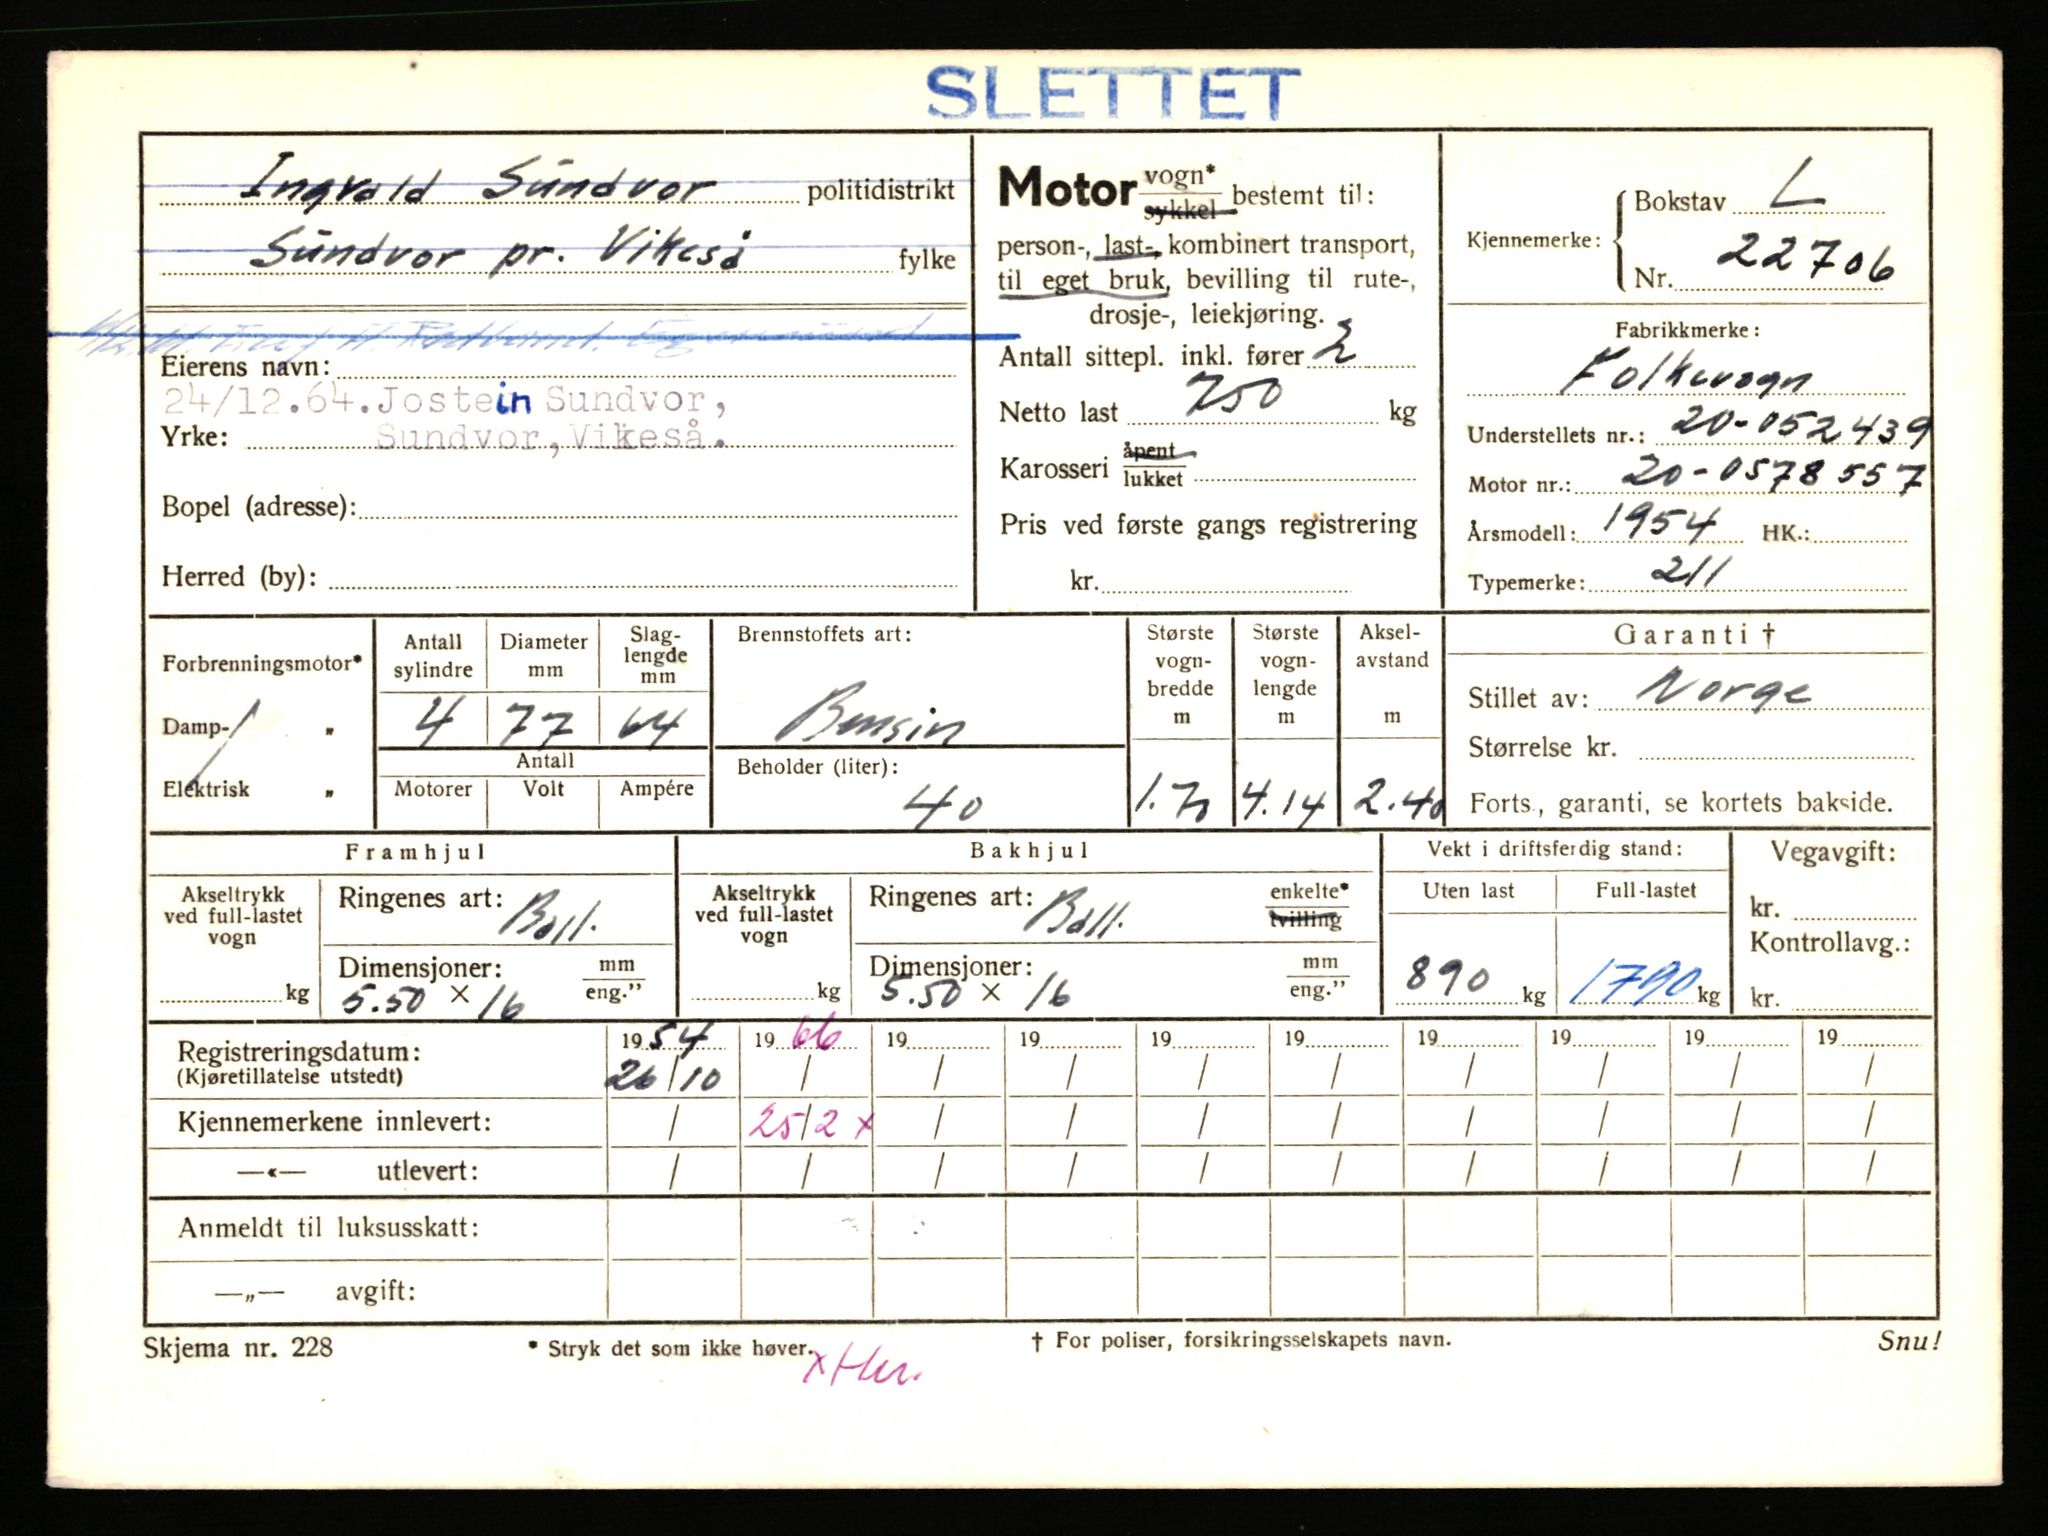 SLETTET
Ingvald Sundvor politidistrikt
Sundvor pr. Vikeså fylke
Eierens navn:
24/12.64. Jostein Sundvor,
Yrke: Sundvor, Vikeså.
Bopel (adresse):
Herred (by):
Motor vogn* sykkel bestemt til:
person-, last-, kombinert transport,
til eget bruk, bevilling til rute-,
drosje-, leiekjøring.
Antall sittepl. inkl. fører 2
Netto last 750 kg
Karosseri åpent lukket
Pris ved første gangs registrering
kr.
Kjennemerke: Bokstav L
Nr. 22706
Fabrikkmerke:
Folkevogn
Understellets nr.: 20-052439
Motor nr.: 20-0578557
Årsmodell: 1954 HK.:
Typemerke: 211
Forbrenningsmotor*
Damp- „
Elektrisk „
Antall sylindre Diameter mm Slag-lengde mm
4 77 64
Antall
Motorer Volt Ampére
Brennstoffets art:
Bensin
Beholder (liter):
40
Største vogn-bredde m
1.70
Største vogn-lengde m
4.14
Aksel-avstand m
2.40
Garanti †
Stillet av: Norge
Størrelse kr.
Forts., garanti, se kortets bakside.
Framhjul
Akseltrykk ved full-lastet vogn
kg
Ringenes art: Ball.
Dimensjoner: mm eng."
5.50 × 16
Bakhjul
Akseltrykk ved full-lastet vogn
kg
Ringenes art: Ball. enkelte* tvilling
Dimensjoner: mm eng."
5.50 × 16
Vekt i driftsferdig stand:
Uten last Full-lastet
890 kg 1790 kg
Vegavgift:
kr.
Kontrollavg.:
kr.
Registreringsdatum: 1954 1966 19 19 19 19 19 19 19 19
(Kjøretillatelse utstedt) 26/10 / / / / / / / / /
Kjennemerkene innlevert: / 25/2 × / / / / / / / /
—«— utlevert: / / / / / / / / / /
Anmeldt til luksusskatt:
—„— avgift:
Skjema nr. 228 * Stryk det som ikke høver. † For poliser, forsikringsselskapets navn. Snu!